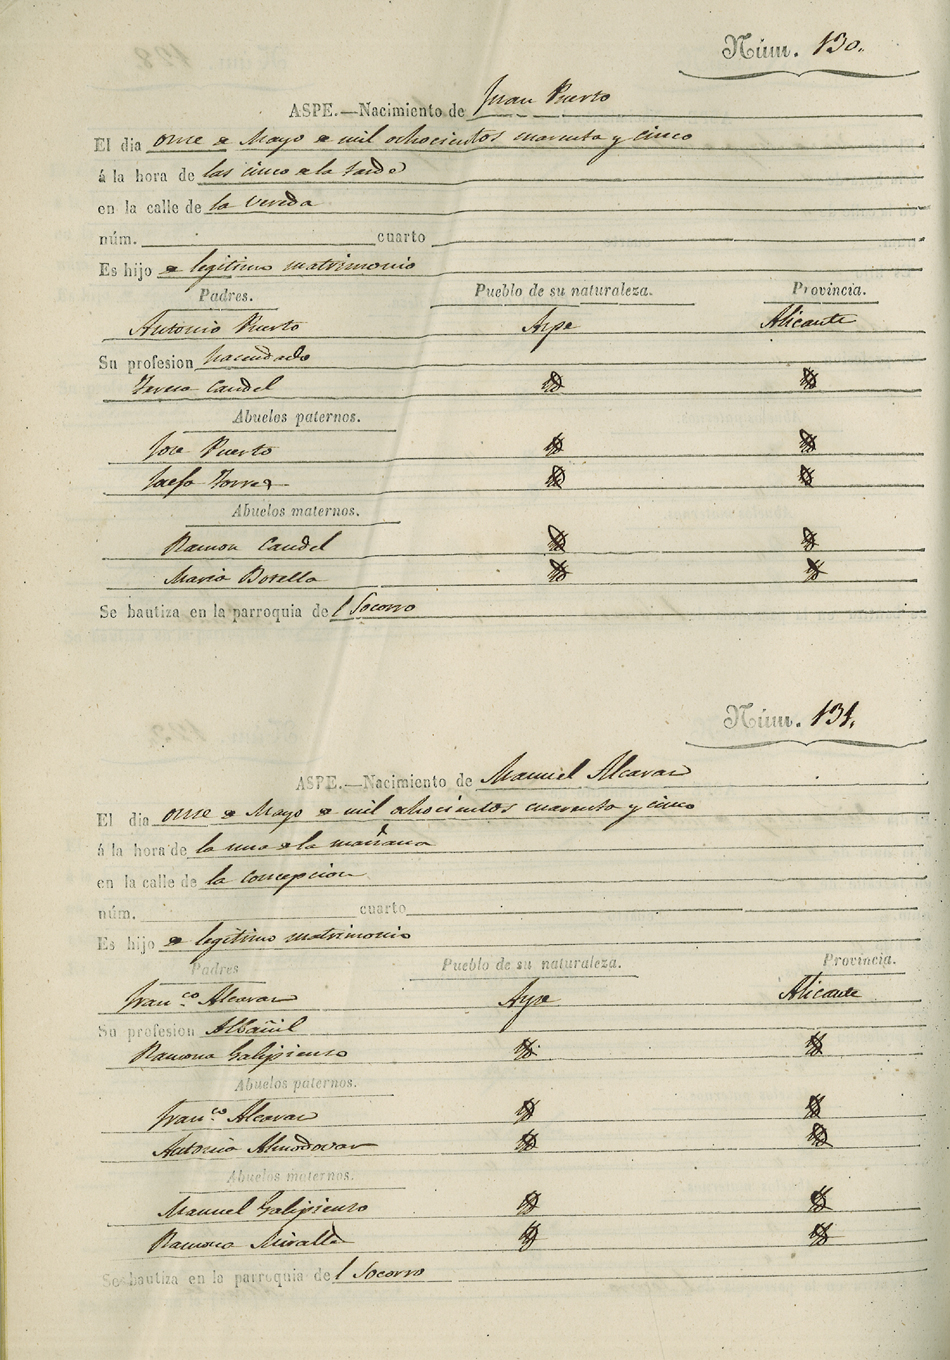 Núm. 130.
ASPE.—Nacimiento de Juan Puerto
El dia onse de Mayo de mil ochocientos cuarenta y cinco
á la hora de las cinco de la tarde
en la calle de la Vereda
núm. cuarto
Es hijo de legitimo matrimonio
Padres. Pueblo de su naturaleza. Provincia.
Antonio Puerto Aspe Alicante
Su profesion hacendado
Teresa Caudel
Abuelos paternos.
Jose Puerto
Torres
Abuelos maternos.
Ramon Caudel
Maria Botella
Se bautiza en la parroquia del Socorro
Núm. 131.
ASPE.—Nacimiento de Manuel Alcaraz
El dia onse de Mayo de mil ochocientos cuarenta y cinco
á la hora de la una de la mañana
en la calle de la concepcion
núm. cuarto
Es hijo de legitimo matrimonio
Padres Pueblo de su naturaleza. Provincia.
Franco. Alcaraz Aspe Alicante
Su profesion Albañil
Ramona Galipienso
Abuelos paternos.
Franco. Alcaraz
Antonia Almodovar
Abuelos maternos.
Manuel Galipienso
Ramona Miralle
Se bautiza en la parroquia del Socorro